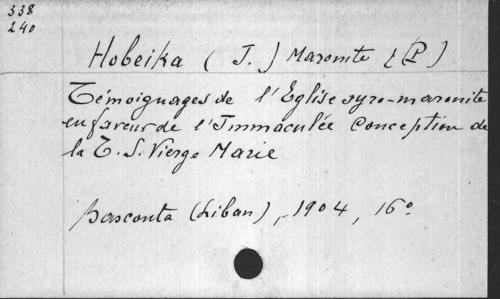 338
240
Hobeika (J.) Maronite (P)
Témoignages de l'Eglise syro-maronite
en faveur de l'Immaculée Conception de
la T. S. Vierge Marie
Basconta (Liban), 1904, 16°